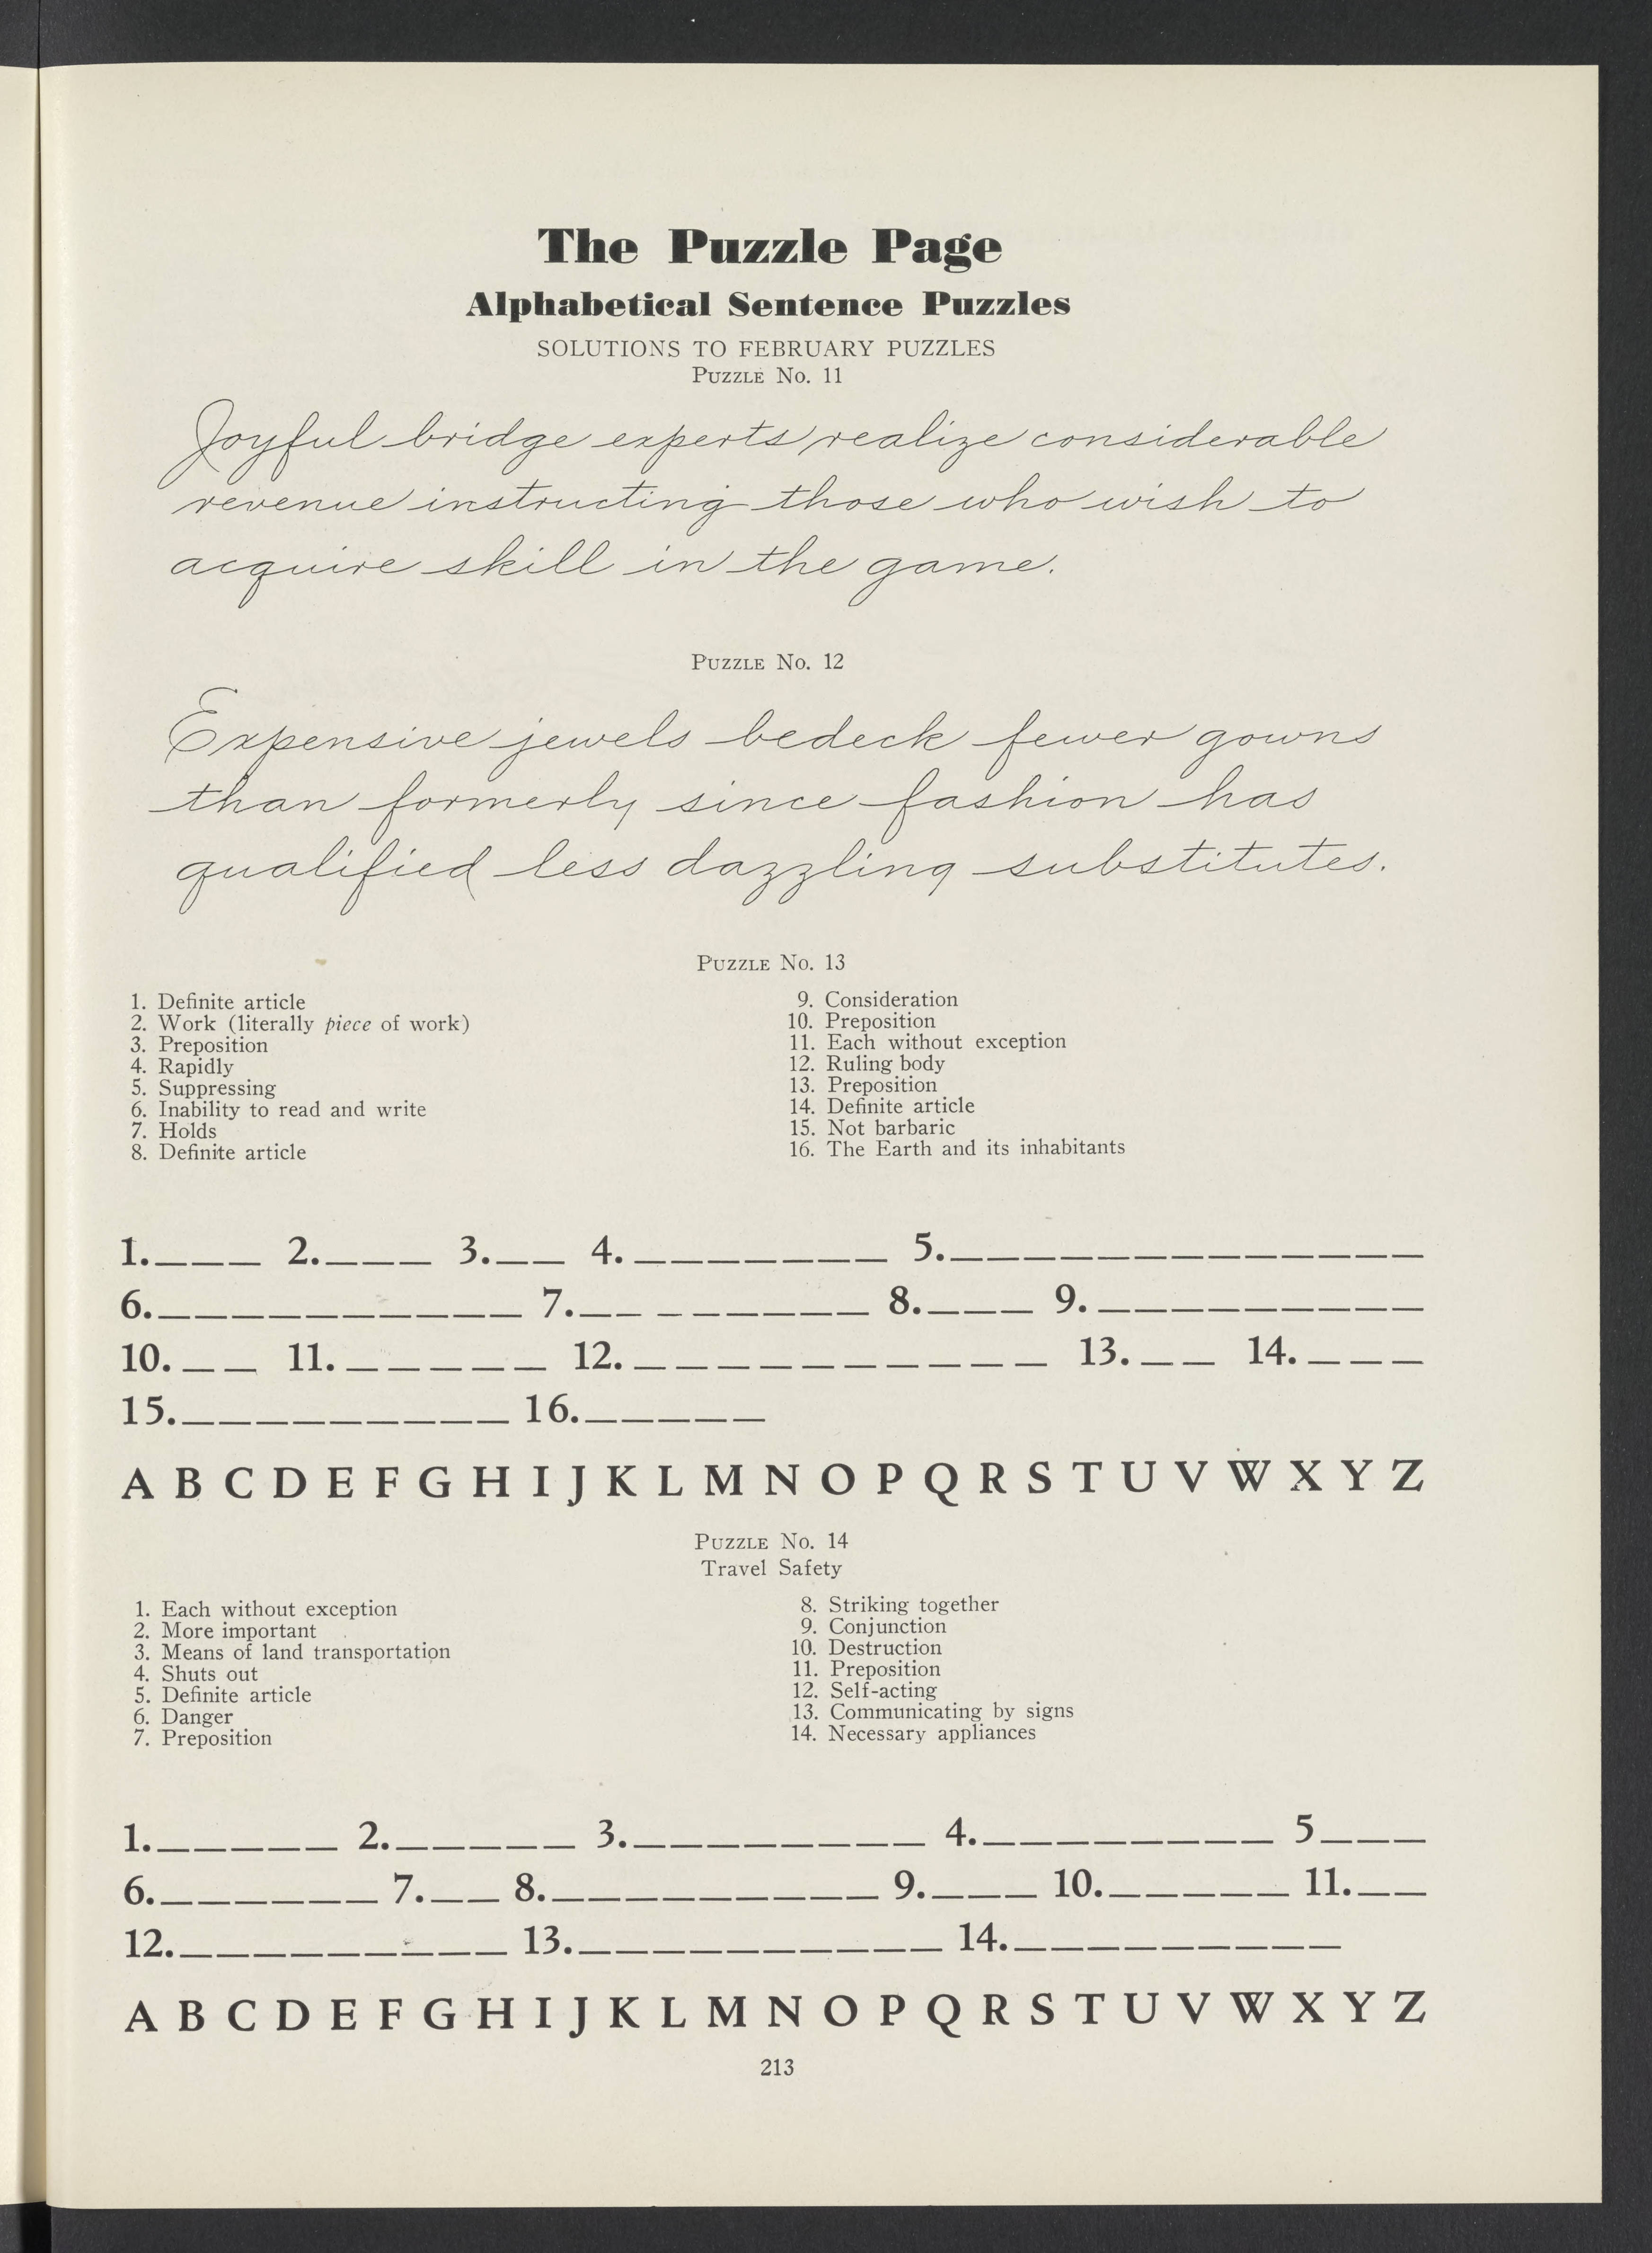 The Puzzle Page
Alphabetical Sentence Puzzles
SOLUTIONS TO FEBRUARY PUZZLES
Puzzle No. 11
Joyful bridge experts realize considerable
revenue instructing those who wish to
acquire skill in the game.
Puzzle No. 12
Expensive jewels bedeck fewer gowns
than formerly since fashion has
qualified less dazzling substitutes.
Puzzle No. 13
1. Definite article
2. Work (literally piece of work)
3. Preposition
4. Rapidly
5. Suppressing
6. Inability to read and write
7. Holds
8. Definite article
9. Consideration
10. Preposition
11. Each without exception
12. Ruling body
13. Preposition
14. Definite article
15. Not barbaric
16. The Earth and its inhabitants
1._ _ _ 2._ _ _ 3._ _ 4._ _ _ _ _ _ _ 5._ _ _ _ _ _ _ _ _ _ _ _ _
6._ _ _ _ _ _ _ _ _ _ 7._ _ _ _ _ _ _ _ 8._ _ _ 9._ _ _ _ _ _ _ _ _
10._ _ 11._ _ _ _ _ _ 12._ _ _ _ _ _ _ _ _ _ _ 13._ _ 14._ _ _
15._ _ _ _ _ _ _ _ _ 16._ _ _ _ _
A B C D E F G H I J K L M N O P Q R S T U V W X Y Z
Puzzle No. 14
Travel Safety
1. Each without exception
2. More important
3. Means of land transportation
4. Shuts out
5. Definite article
6. Danger
7. Preposition
8. Striking together
9. Conjunction
10. Destruction
11. Preposition
12. Self-acting
13. Communicating by signs
14. Necessary appliances
1._ _ _ _ _ 2._ _ _ _ _ 3._ _ _ _ _ _ _ _ 4._ _ _ _ _ _ _ _ 5_ _ _
6._ _ _ _ _ _ 7._ _ 8._ _ _ _ _ _ _ _ _ 9._ _ _ 10._ _ _ _ _ 11._ _
12._ _ _ _ _ _ _ _ _ 13._ _ _ _ _ _ _ _ _ _ 14._ _ _ _ _ _ _ _ _
A B C D E F G H I J K L M N O P Q R S T U V W X Y Z
213